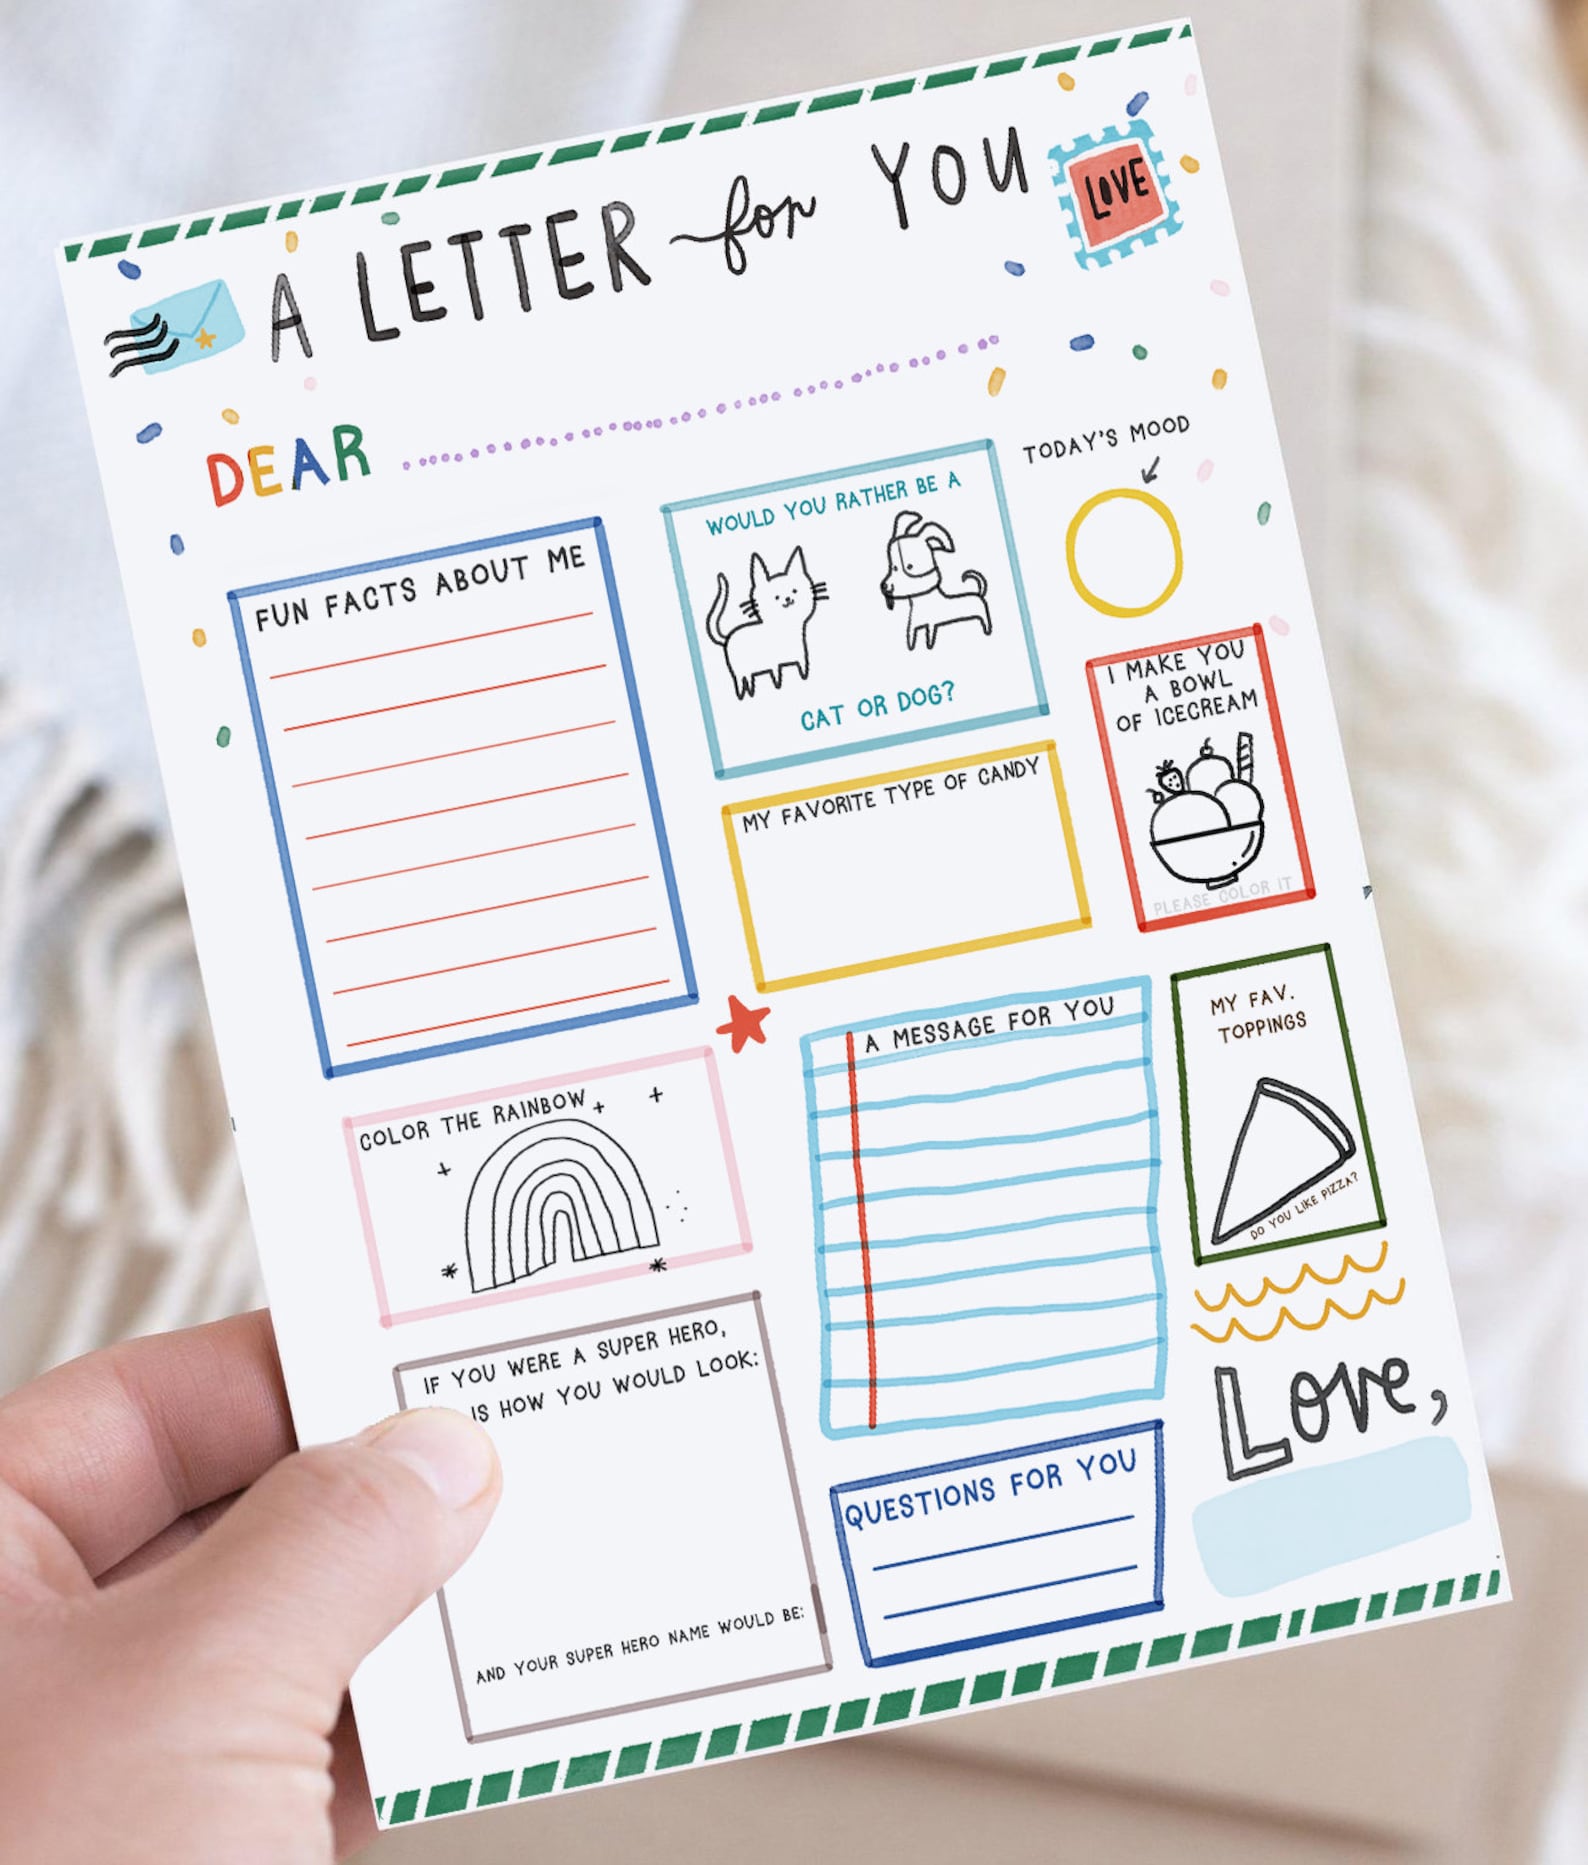 A LETTER for YOU
LOVE
DEAR
TODAY'S MOOD
FUN FACTS ABOUT ME
WOULD YOU RATHER BE A
CAT OR DOG?
I MAKE YOU
A BOWL
OF ICECREAM
PLEASE COLOR IT
MY FAVORITE TYPE OF CANDY
MY FAV.
TOPPINGS
DO YOU LIKE PIZZA?
A MESSAGE FOR YOU
COLOR THE RAINBOW
IF YOU WERE A SUPER HERO,
IS HOW YOU WOULD LOOK:
AND YOUR SUPER HERO NAME WOULD BE:
QUESTIONS FOR YOU
Love,